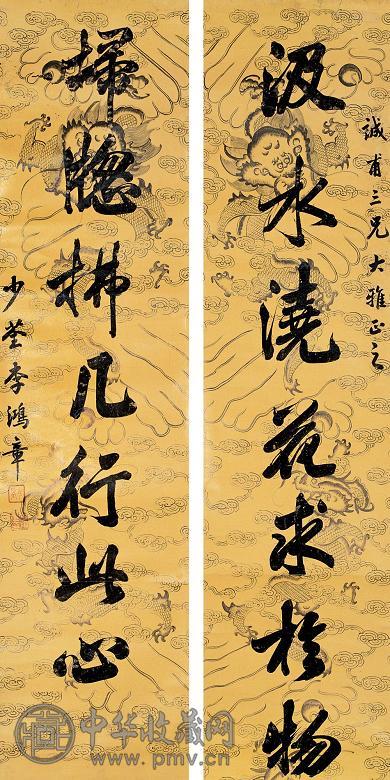 誠甫三兄大雅正之
汲水澆花求於物
掃牕拂几行此心
少荃李鴻章
中华收藏网
www.pmv.cn